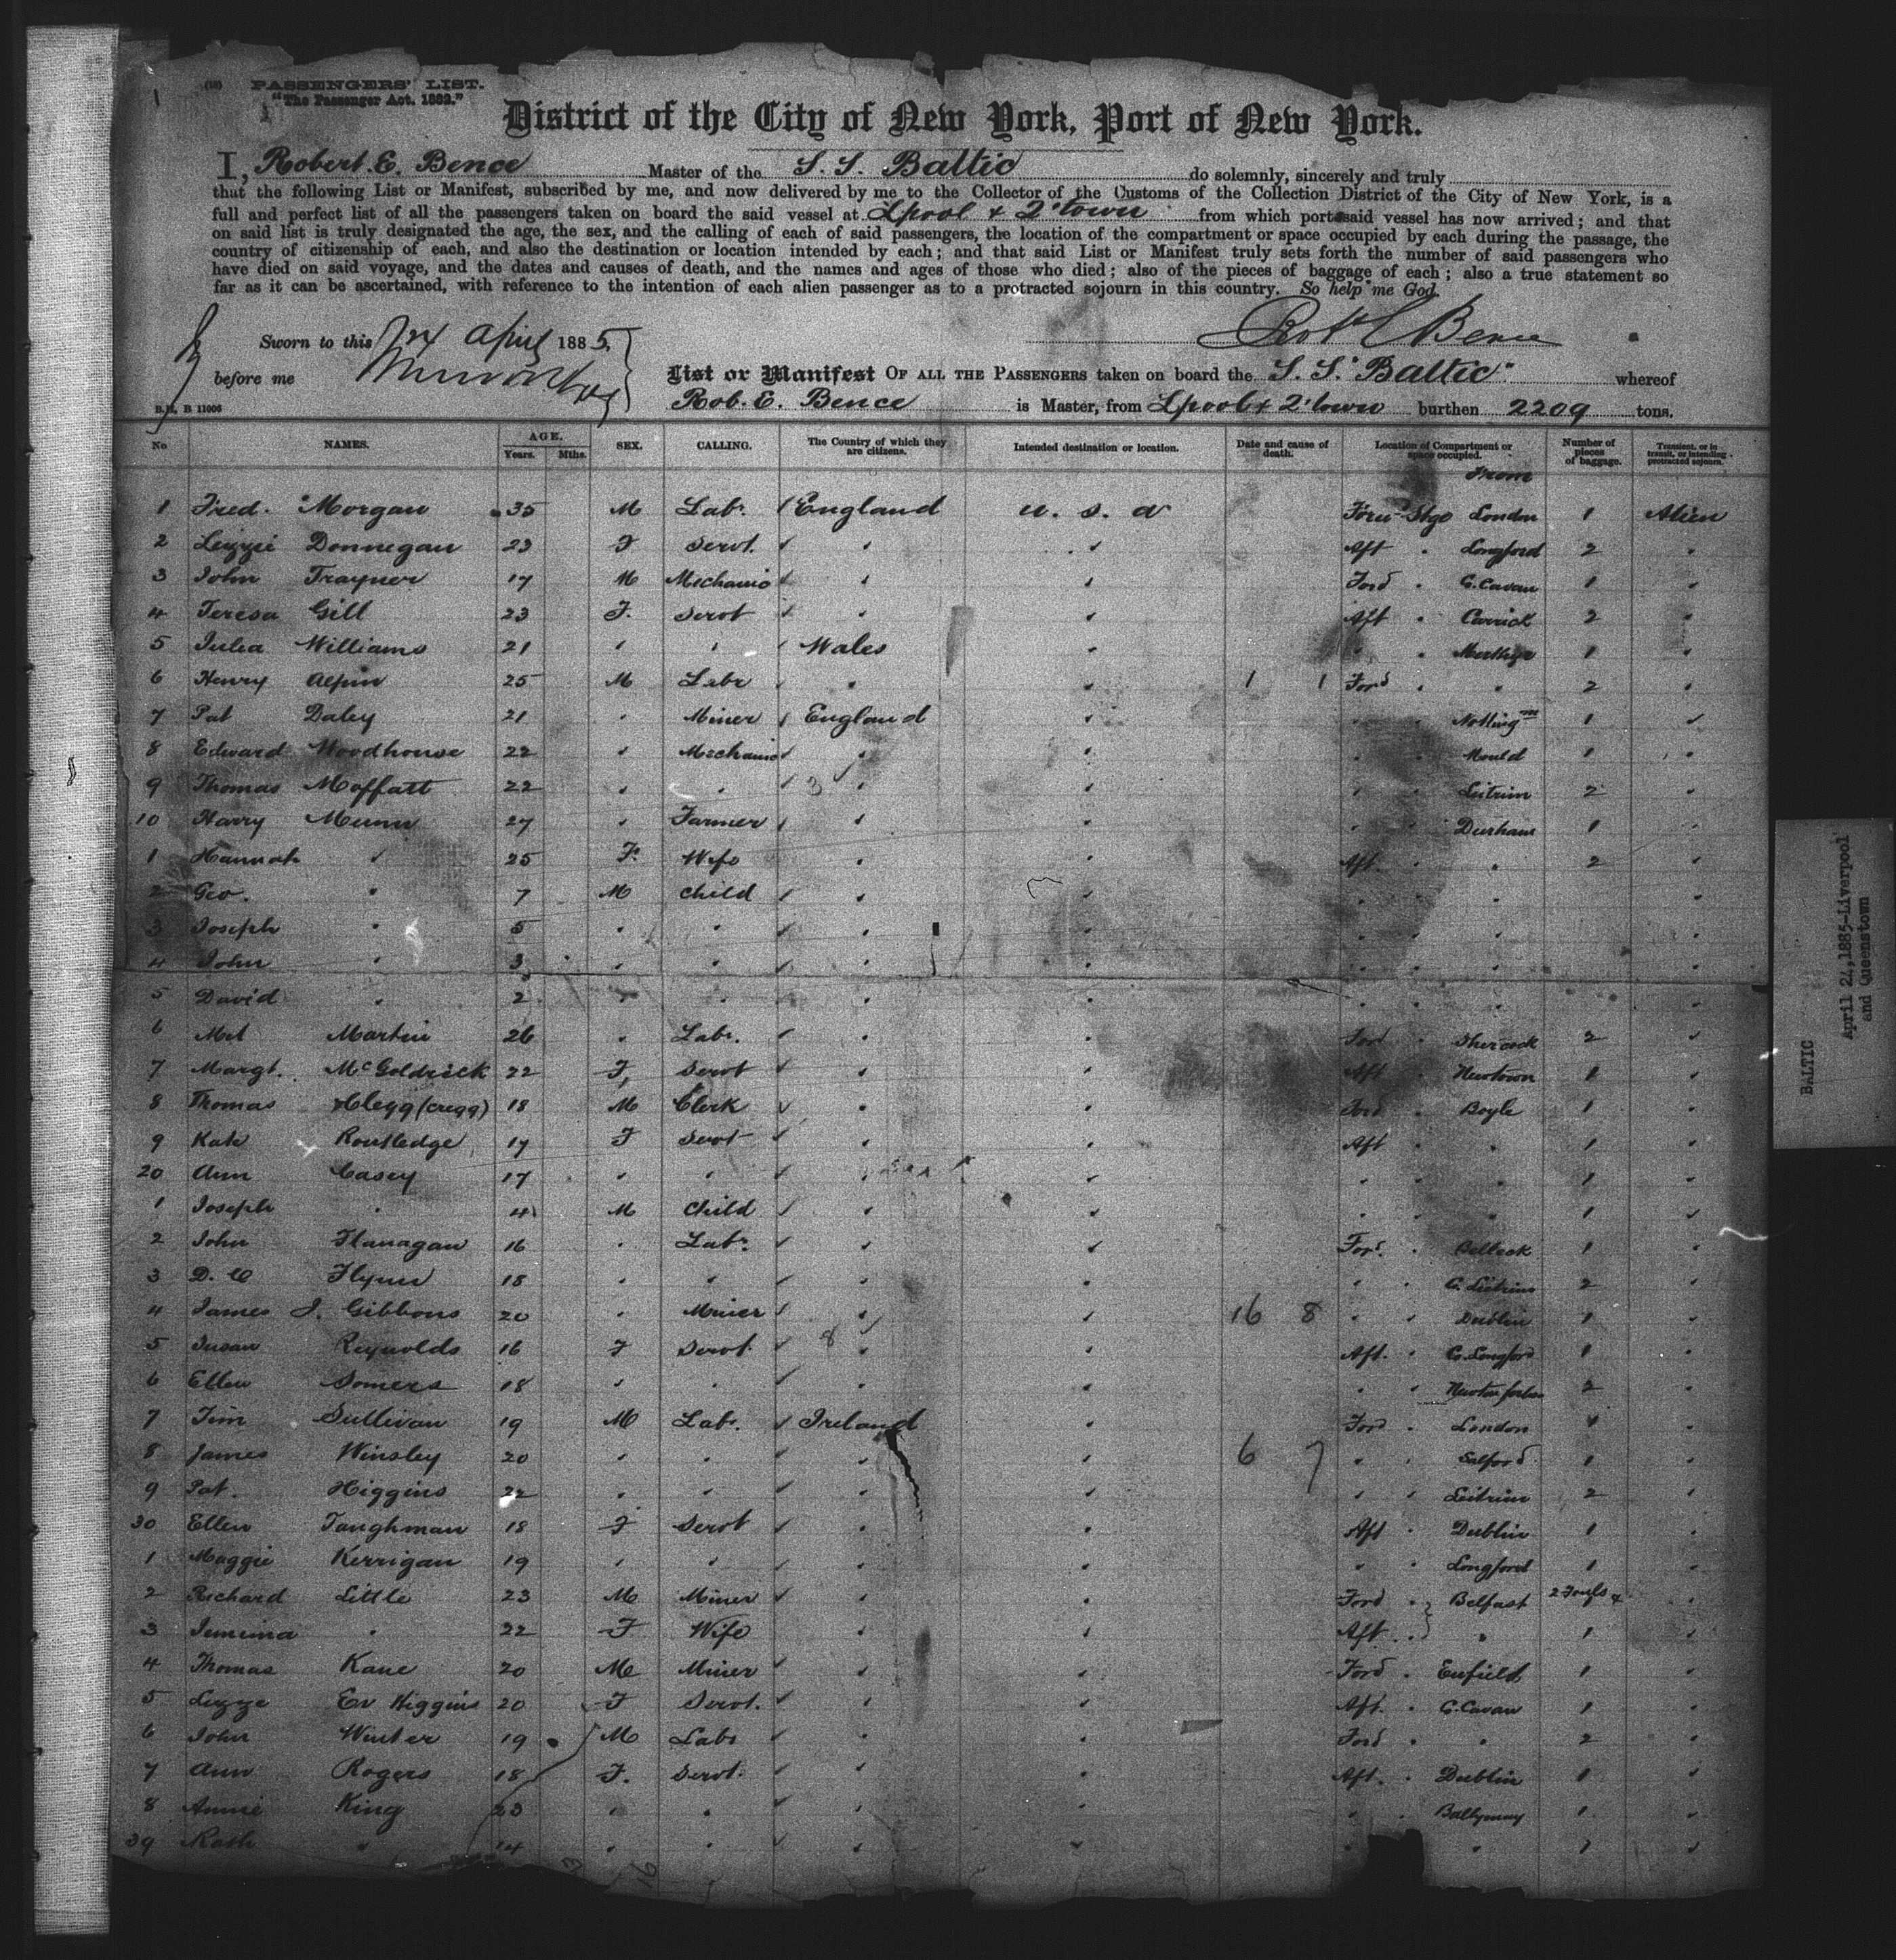 1
(18) PASSENGERS' LIST.
"The Passenger Act. 1882."
District of the City of New York, Port of New York.
I, Robert. E. Bence Master of the S. S. Baltic do solemnly, sincerely and truly
that the following List or Manifest, subscribed by me, and now delivered by me to the Collector of the Customs of the Collection District of the City of New York, is a
full and perfect list of all the passengers taken on board the said vessel at Lpool & Q'town from which port said vessel has now arrived; and that
on said list is truly designated the age, the sex, and the calling of each of said passengers, the location of the compartment or space occupied by each during the passage, the
country of citizenship of each, and also the destination or location intended by each; and that said List or Manifest truly sets forth the number of said passengers who
have died on said voyage, and the dates and causes of death, and the names and ages of those who died; also of the pieces of baggage of each; also a true statement so
far as it can be ascertained, with reference to the intention of each alien passenger as to a protracted sojourn in this country. So help me God.
Sworn to this 24 April 1885. Robt E Bence
before me
List or Manifest OF ALL THE PASSENGERS taken on board the S. S. "Baltic" whereof
B.N. B 11006 Rob. E. Bence is Master, from Lpool & Q'town burthen 2209 tons.
No NAMES. AGE. Years. Mths. SEX. CALLING. The Country of which they are citizens. Intended destination or location. Date and cause of death. Location of Compartment or space occupied. Number of pieces of baggage. Transient, or in transit, or intending protracted sojourn.
From
1 Fred. Morgan 35 M Labr. England U. S. A Stge London 1 Alien
2 Lizzie Donnegan 23 F Servt. " " Aft " Longford 2 "
3 John Trayner 17 M Mechanic " " Ford " C. Cavan 1 "
4 Teresa Gill 23 F. Servt " " Aft " Carrick 2 "
5 Julia Williams 21 " " Wales " " " Merthyr 1 "
6 Henry Alpin 25 M Labr " " 1 1 Ford " " 2 "
7 Pat Daley 21 " Miner England " " " Nottingm 1 "
8 Edward Woodhouse 22 " Mechanic " " " " Mould 1 "
9 Thomas Moffatt 22 " " 3 " " " " Leitrim 2 "
10 Harry Munn 27 " Farmer " " " " Durham 1 "
1 Hannah " 25 F. Wife " " Aft. " " 2 "
2 Geo. " 7 M Child " " " " " "
3 Joseph " 5 " " " " " " " "
4 John " 3 " " " " " " " "
5 David " 2 " " " " " " " "
6 Martin 26 " Labr. " " Ford " Shercock 2 "
7 Margt. McGoldrick 22 F, Servt " " Aft " Newtown 1 "
8 Thomas Clegg (Cregg) 18 M Clerk " " Ford " Boyle 1 "
9 Kate Routledge 17 F Servt " " Aft " 1 "
20 Ann Casey 17 " " " " " " " 1 "
1 Joseph " 4 M Child " " " " " 1 "
2 John Flanagan 16 " Labr. " " Ford. " Belleek 1 "
3 Flynn 18 " " " " " " C. Leitrim 2 "
4 James J. Gibbons 20 " Miner " " 16 8 " " Dublin 1 "
5 Susan Reynolds 16 F Servt. 8 " " Aft. " C. Longford 1 "
6 Ellen Somers 18 " " " " " " Newton forbes 2 "
7 Tim Sullivan 19 M Labr. Ireland " Ford " London 1 "
8 James Winsley 20 " " " " 6 7 " " Salford 1 "
9 Pat. Higgins 22 " " " " " " Leitrim 2 "
30 Ellen Taughman 18 F Servt " " Aft " Dublin 1 "
1 Maggie Kerrigan 19 " " " " " " Longford 1 "
2 Richard Little 23 M Miner " " Ford " Belfast "
3 Jemima " 22 F Wife " " Aft " " 1 "
4 Thomas Kane 20 M Miner " " Ford " Enfield 1 "
5 Lizze Ev Higgins 20 F Servt. " " Aft. " C. Cavan 1 "
6 John Winter 19 M Labr " " Ford " " 2 "
7 Ann Rogers 18 F. Servt. " " Aft. " Dublin 1 "
8 Annie King 23 " " " " " " Ballymay 1 "
39 " 14 " " " " " " 1 "
BALTIC April 24, 1885-Liverpool
and Queenstown